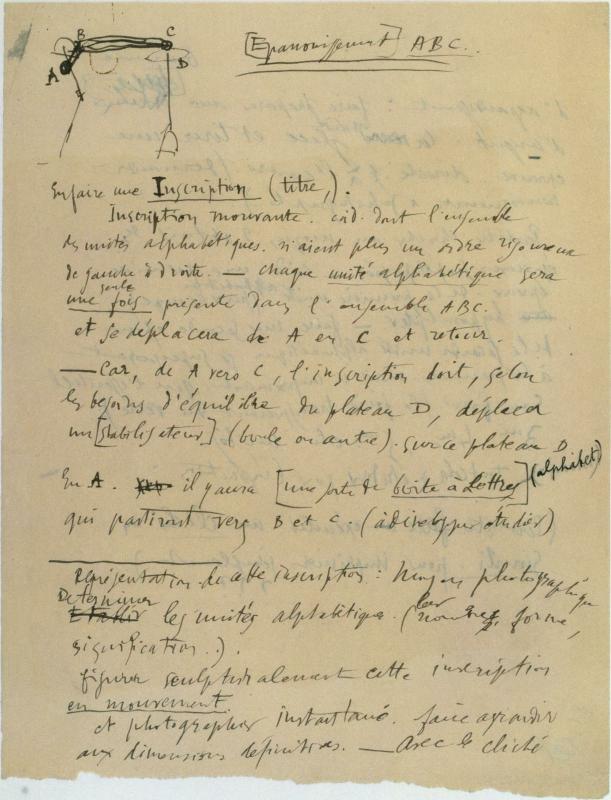 B C
[Epanouissement] ABC.
A D
En faire une Inscription (titre,).
Inscription mouvante. càd. dont l'ensemble
des unités alphabétiques. n'aient plus un ordre rigoureux
de gauche à droite. — chaque unité alphabétique sera
seule
une fois présente dans l'ensemble ABC.
et se déplacera de A en C et retour.
— Car, de A vers C, l'inscription doit, selon
les besoins d'équilibre du plateau D, déplacer
un [stabilisateur] (boule ou autre). sur ce plateau D
En A. il y aura [une sorte de boite à Lettres] (alphabet)
qui partiront vers B et C. (à développer étudier)
Représentation de cette inscription: Moyen photographique
Déterminer
Etablir les unités alphabétique. (leur nombre, forme,
signification..).
figurer sculpturalement cette inscription
en mouvement.
et photographier instantané. faire agrandir
aux dimensions définitives. — Avec le cliché